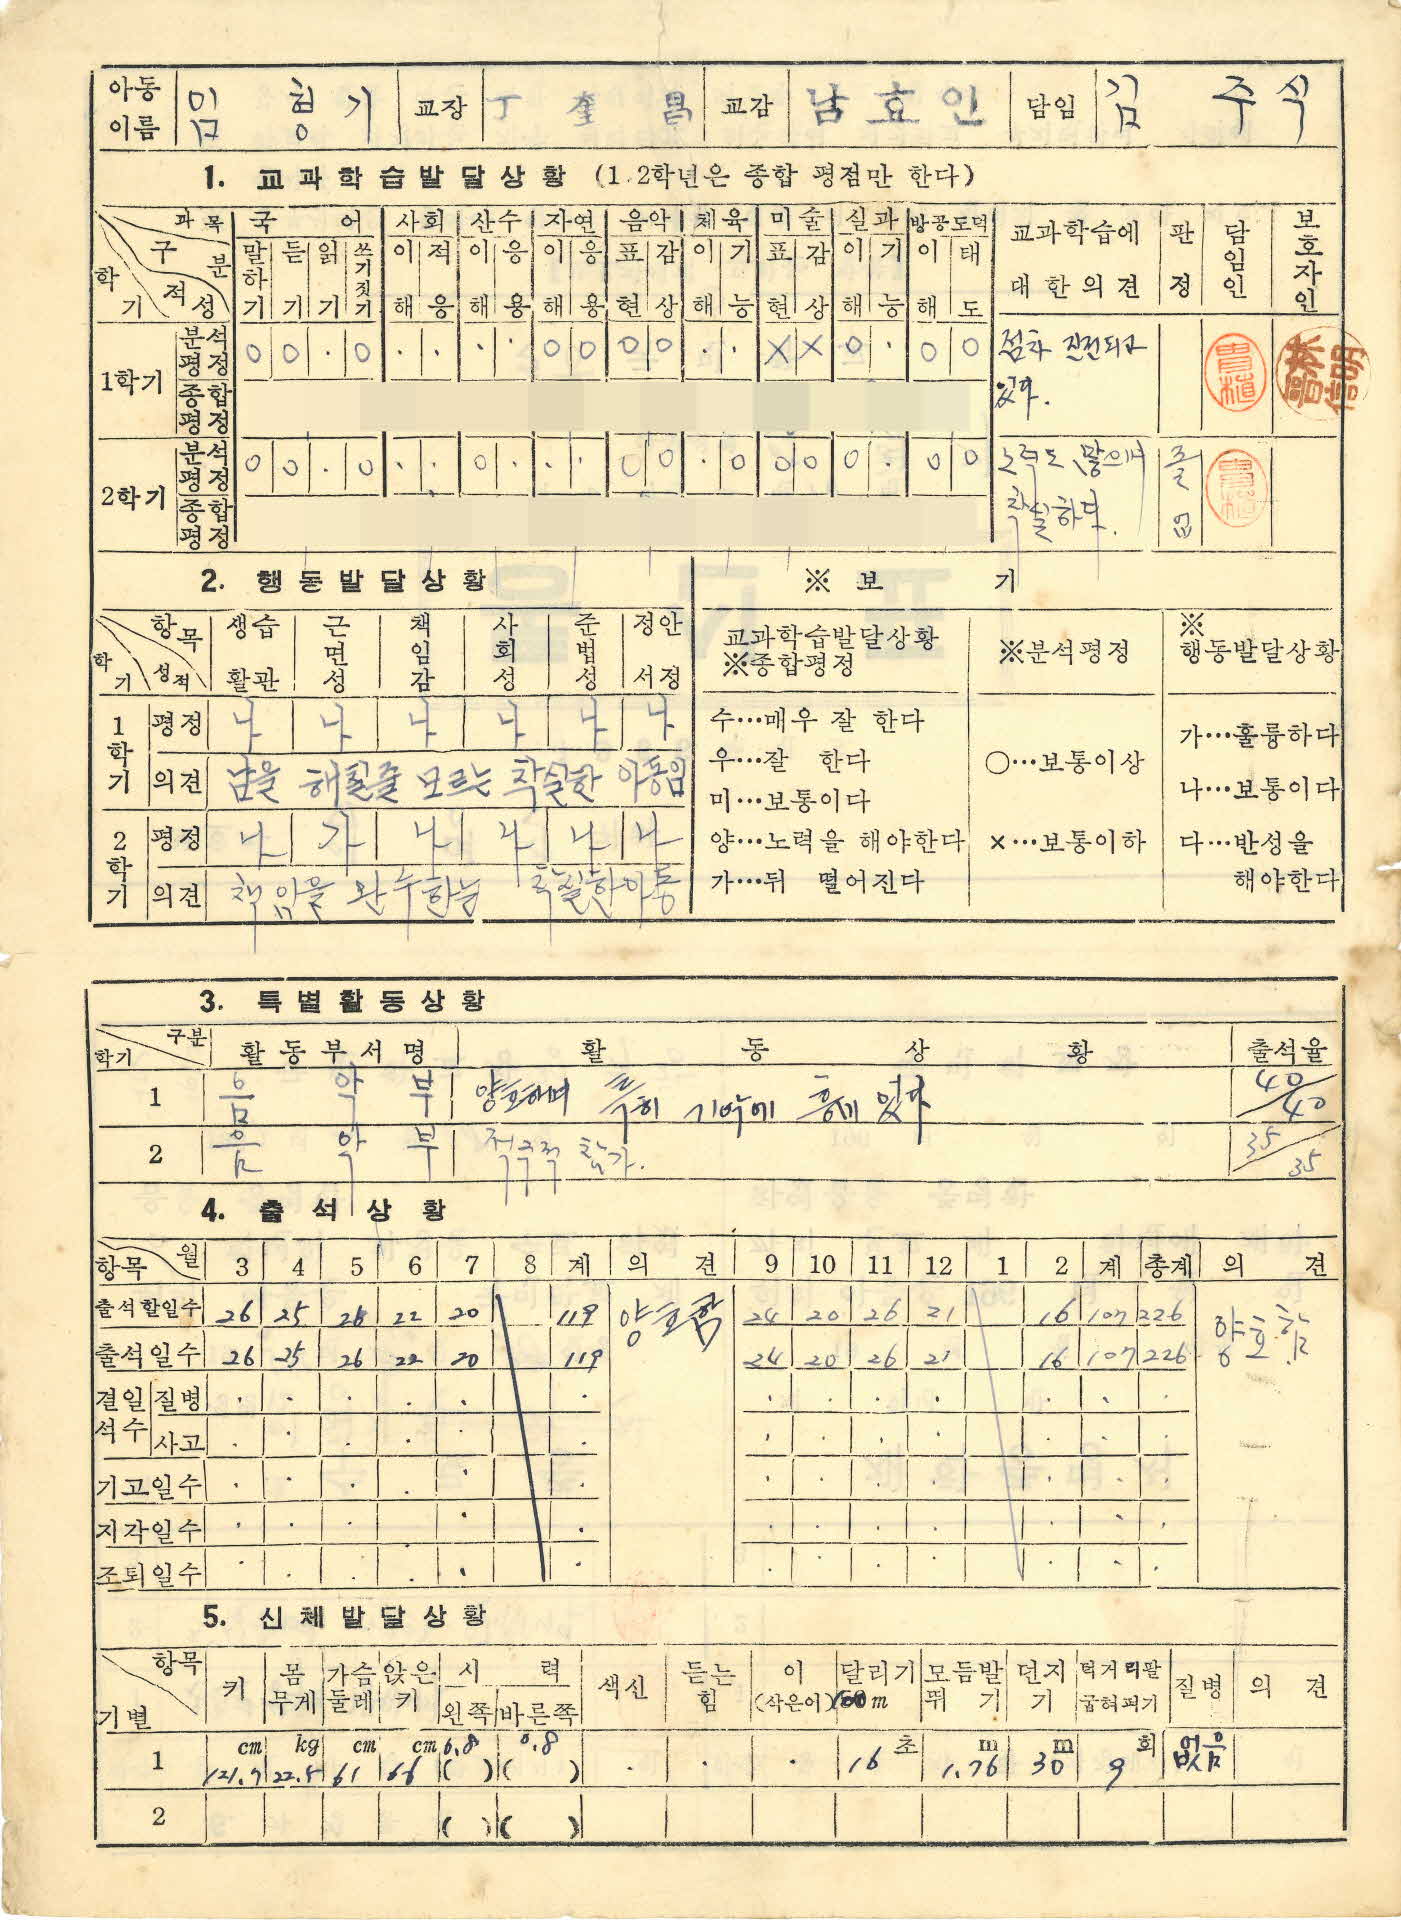 아동이름 임형기 교장 丁奎昌 교감 남효인 담임 김주식
1. 교과학습발달상황 (1.2학년은 종합 평점만 한다)
과목 국어 사회 산수 자연 음악 체육 미술 실과 방공도덕 교과학습에 대한의견 판정 담임인 보호자인
학기 구분 적성 말하기 듣기 읽기 쓰기짓기 이해 적응 이해 응용 이해 응용 표현 감상 이해 기능 표현 감상 이해 기능 이해 태도
1학기 분석평정 ○ ○ · ○ · · · · ○ ○ ○ ○ · · × × ○ · ○ ○ 점차 진전되고 있다.
종합평정
2학기 분석평정 ○ ○ · ○ · · ○ · · · ○ ○ · ○ ○ ○ ○ · ○ ○ 노력도 많으며 착실하다. 졸업
종합평정
2. 행동발달상황 ※ 보기
항목 학기 성적 생활습관 근면성 책임감 사회성 준법성 정서안정
1학기 평정 나 나 나 나 나 나
의견 남을 해칠줄 모르는 착실한 아동임
2학기 평정 나 가 나 나 나 나
의견 책임을 완수하는 착실한아동
교과학습발달상황 ※종합평정 ※분석평정 ※행동발달상황
수…매우 잘 한다
우…잘 한다
미…보통이다
양…노력을 해야한다
가…뒤 떨어진다
○…보통이상
×…보통이하
가…훌륭하다
나…보통이다
다…반성을 해야한다
3. 특별활동상황
학기 구분 활동부서명 활동상황 출석율
1 음악부 양호하며 특히 기악에 흥미 있다 40/40
2 음악부 적극적 참가. 35/35
4. 출석상황
항목 월 3 4 5 6 7 8 계 의견 9 10 11 12 1 2 계 총계 의견
출석할일수 26 25 26 22 20 119 양호함 24 20 26 21 16 107 226 양호함
출석일수 26 25 26 22 20 119 24 20 26 21 16 107 226
결석일수 질병
사고
기고일수
지각일수
조퇴일수
5. 신체발달상황
항목 기별 키 몸무게 가슴둘레 앉은키 시력 왼쪽 바른쪽 색신 듣는힘 이(삭은이) 달리기 100m 모듬발뛰기 던지기 턱거리팔굽혀펴기 질병 의견
1 cm 121.7 kg 22.5 cm 61 cm 66 0.8 ( ) 0.8 ( ) · · · 16초 1.76m 30m 9회 없음
2 ( ) ( )